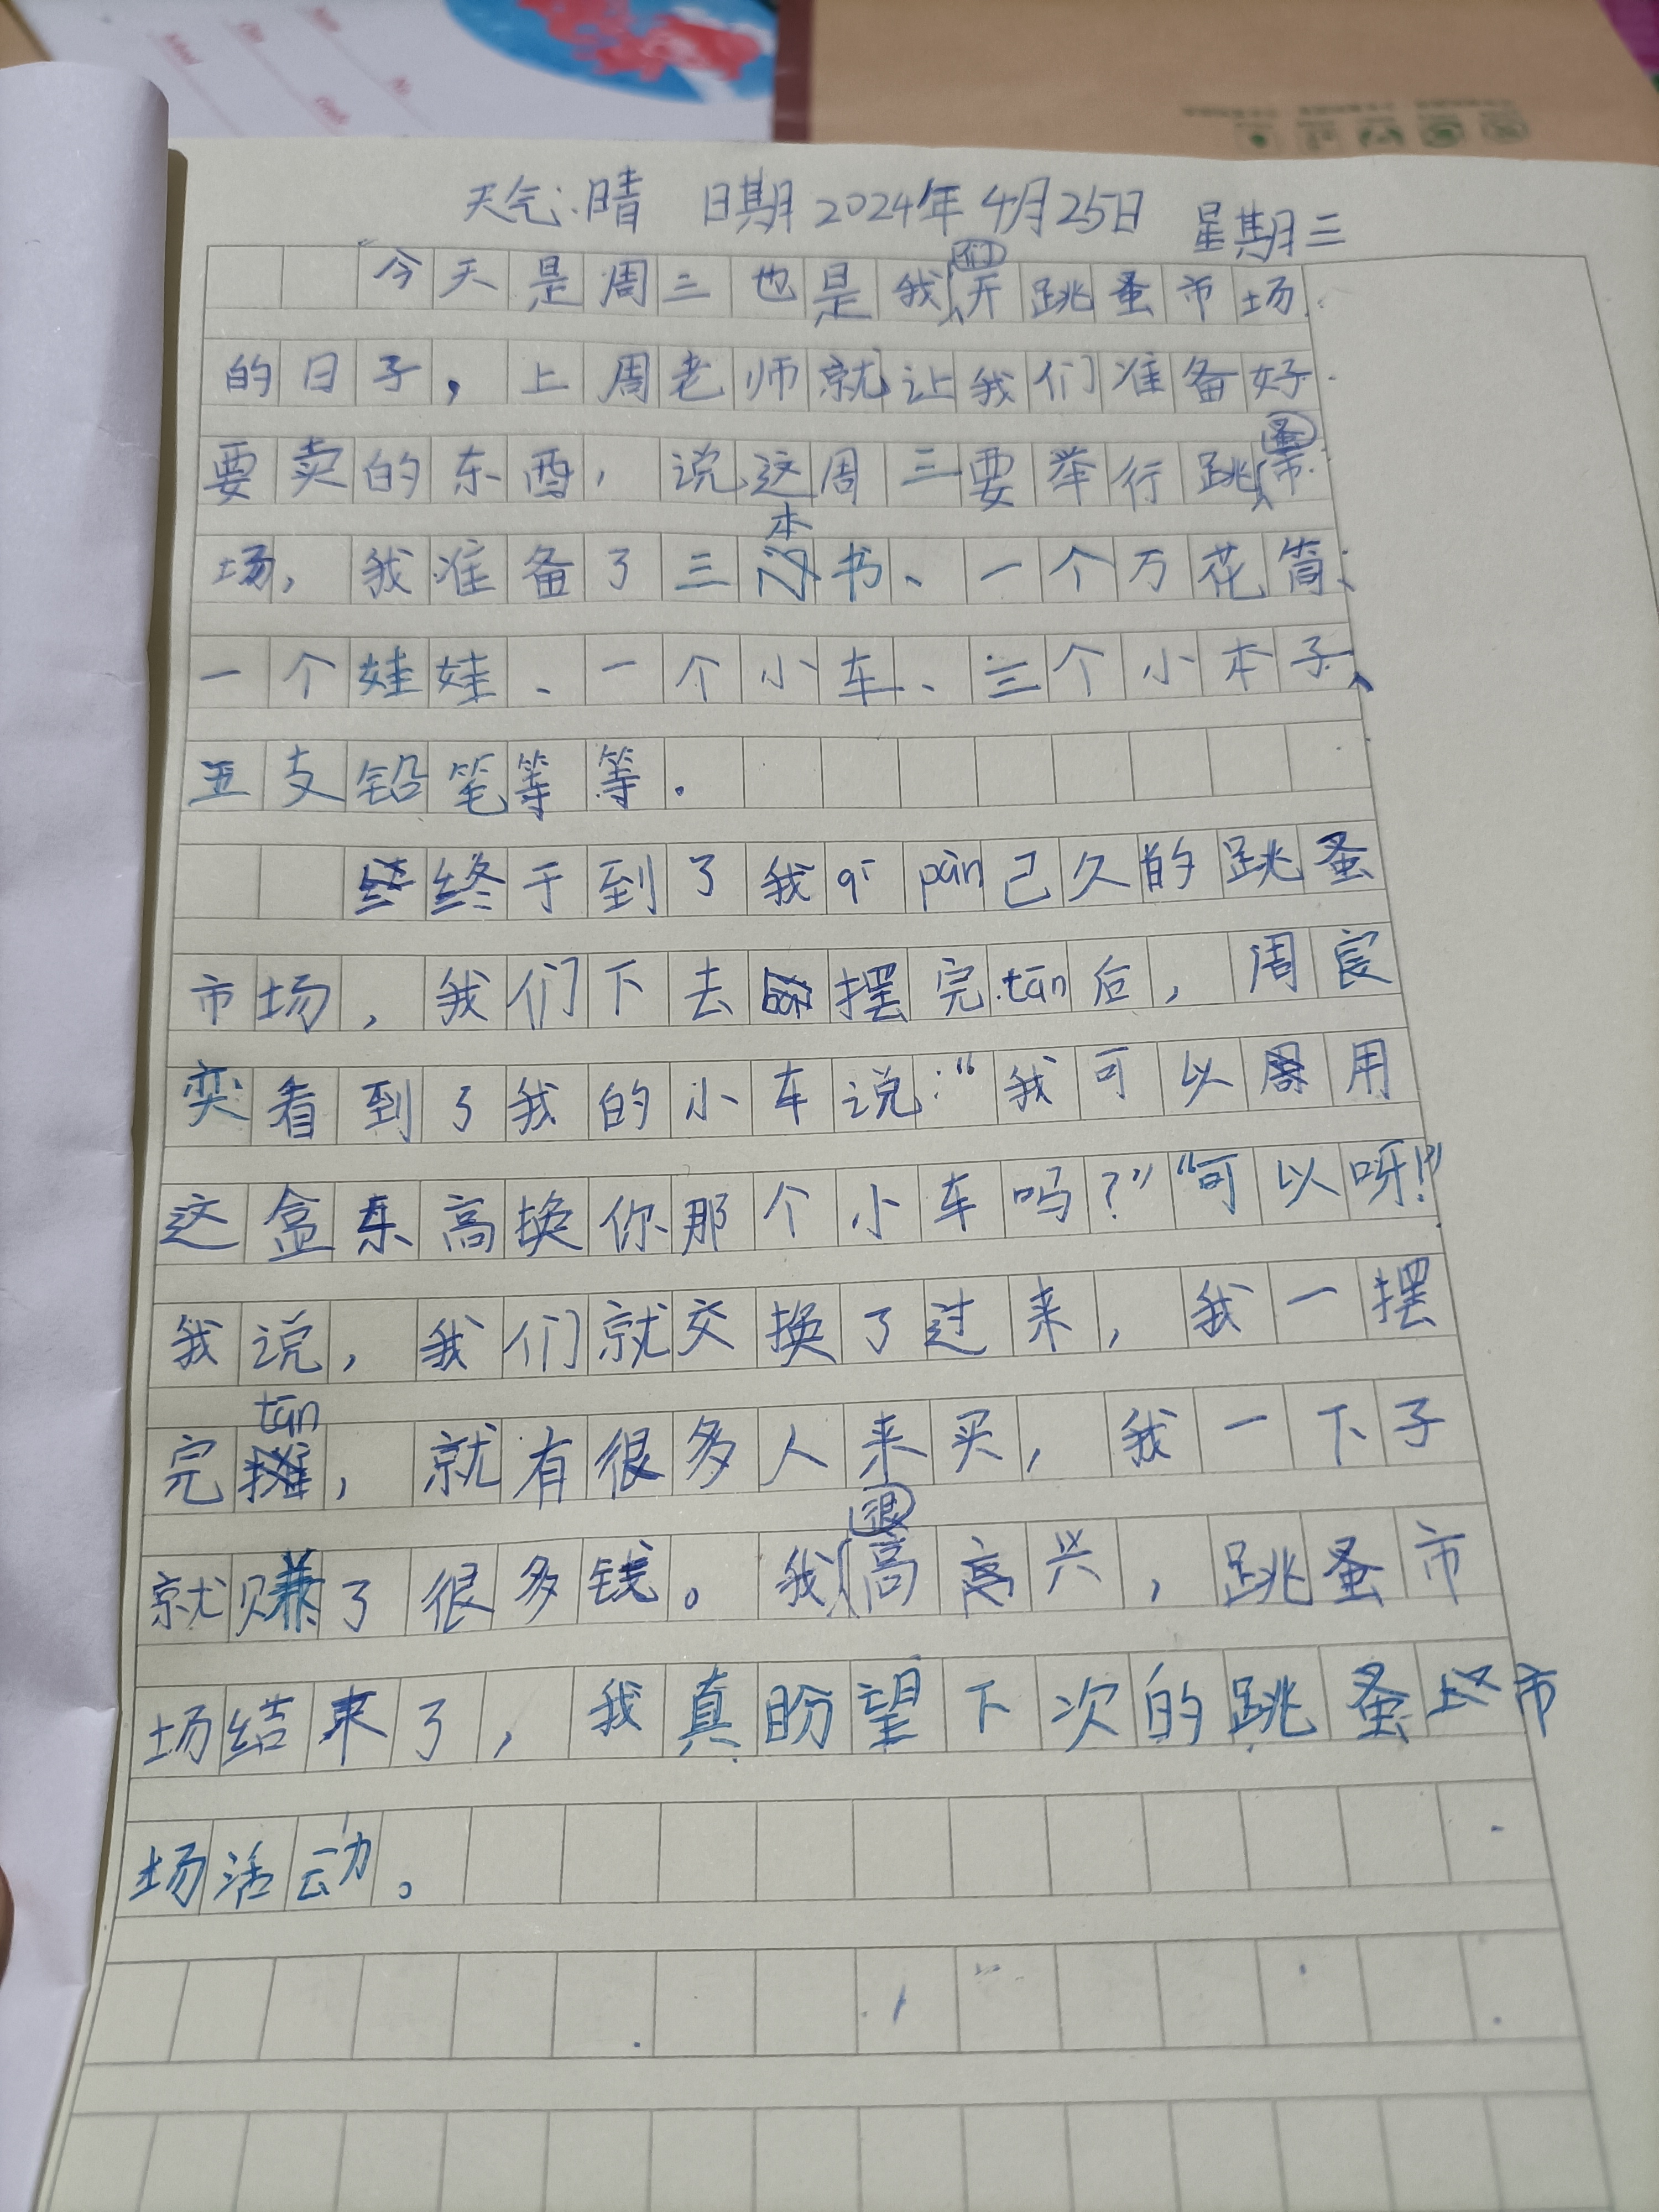 天气:晴 日期 2024年4月25日 星期三
今天是周三也是我们开跳蚤市场
的日子，上周老师就让我们准备好
要卖的东酉，说这周三要举行跳蚤市
场，我准备了三本书、一个万花筒、
一个娃娃、一个小车、三个小本子、
五支铅笔等等.
终于到了我qī pàn己久的跳蚤
市场，我们下去摆完tān后，周良
奕看到了我的小车说:“我可以用
这盒东高换你那个小车吗?”“可以呀!”
我说，我们就交换了过来，我一摆
完tān，就有很多人来买，我一下子
就赚了很多钱。我很高高兴，跳蚤市
场结束了，我真盼望下次的跳蚤市
场活动。